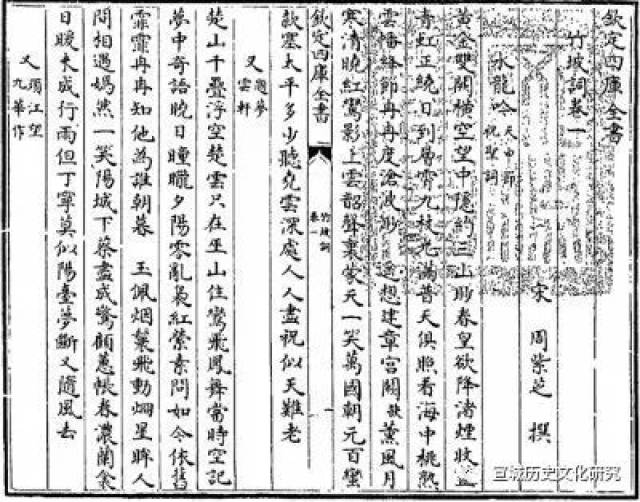 欽定四庫全書
竹坡詞卷一
宋 周紫芝 撰
水龍吟 天申節祝聖詞
黃金雙闕横空望中隱約三山眇春皇欲降渚煙收盡
青虹正繞日到層霄九枝光滿普天俱照看海中桃熟
雲幡絳節冉冉度滄波渺 遥想建章宫闕 薫風月
寒清曉紅鸞影上雲韶聲裏蒙天一笑萬國朝元百蠻
款塞太平多少聽堯雲深處人人盡祝似天難老
欽定四庫全書 竹坡詞 卷一
又 題夢雲軒
楚山千疊浮空楚雲只在巫山住鸞飛鳳舞當時空記
夢中奇語曉日曈曨夕陽零亂裊紅縈素問如今依舊
霏霏冉冉知他為誰朝暮 玉佩烟鬟飛動炯星眸人
間相遇嫣然一笑陽城下蔡盡成驚顧蕙帳春濃蘭衾
日暖未成行雨但丁寧莫似陽臺夢斷又隨風去
又 須江望九華作
宣城历史文化研究